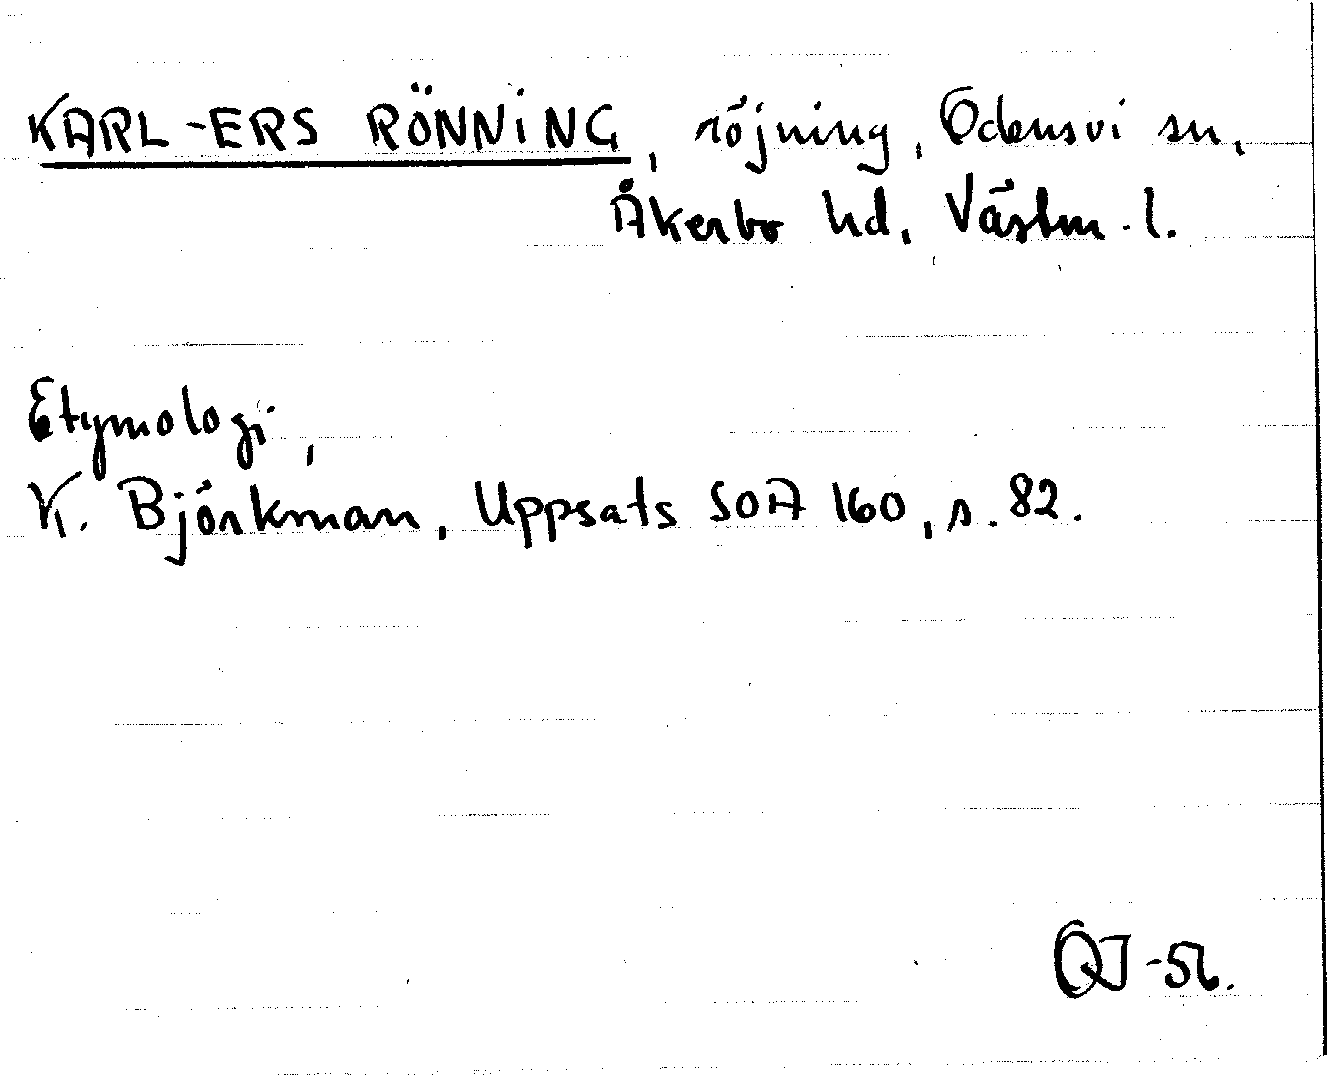 KARL-ERS RÖNNING, röjning, Odensvi sn,
Åkerbo hd, Västm. l.
Etymologi,
K. Björkman, Uppsats SOA 160, s. 82.
QJ-56.